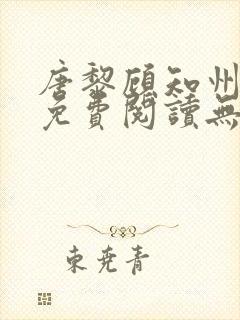 唐黎顾知州
免費閱讀無
東尭青